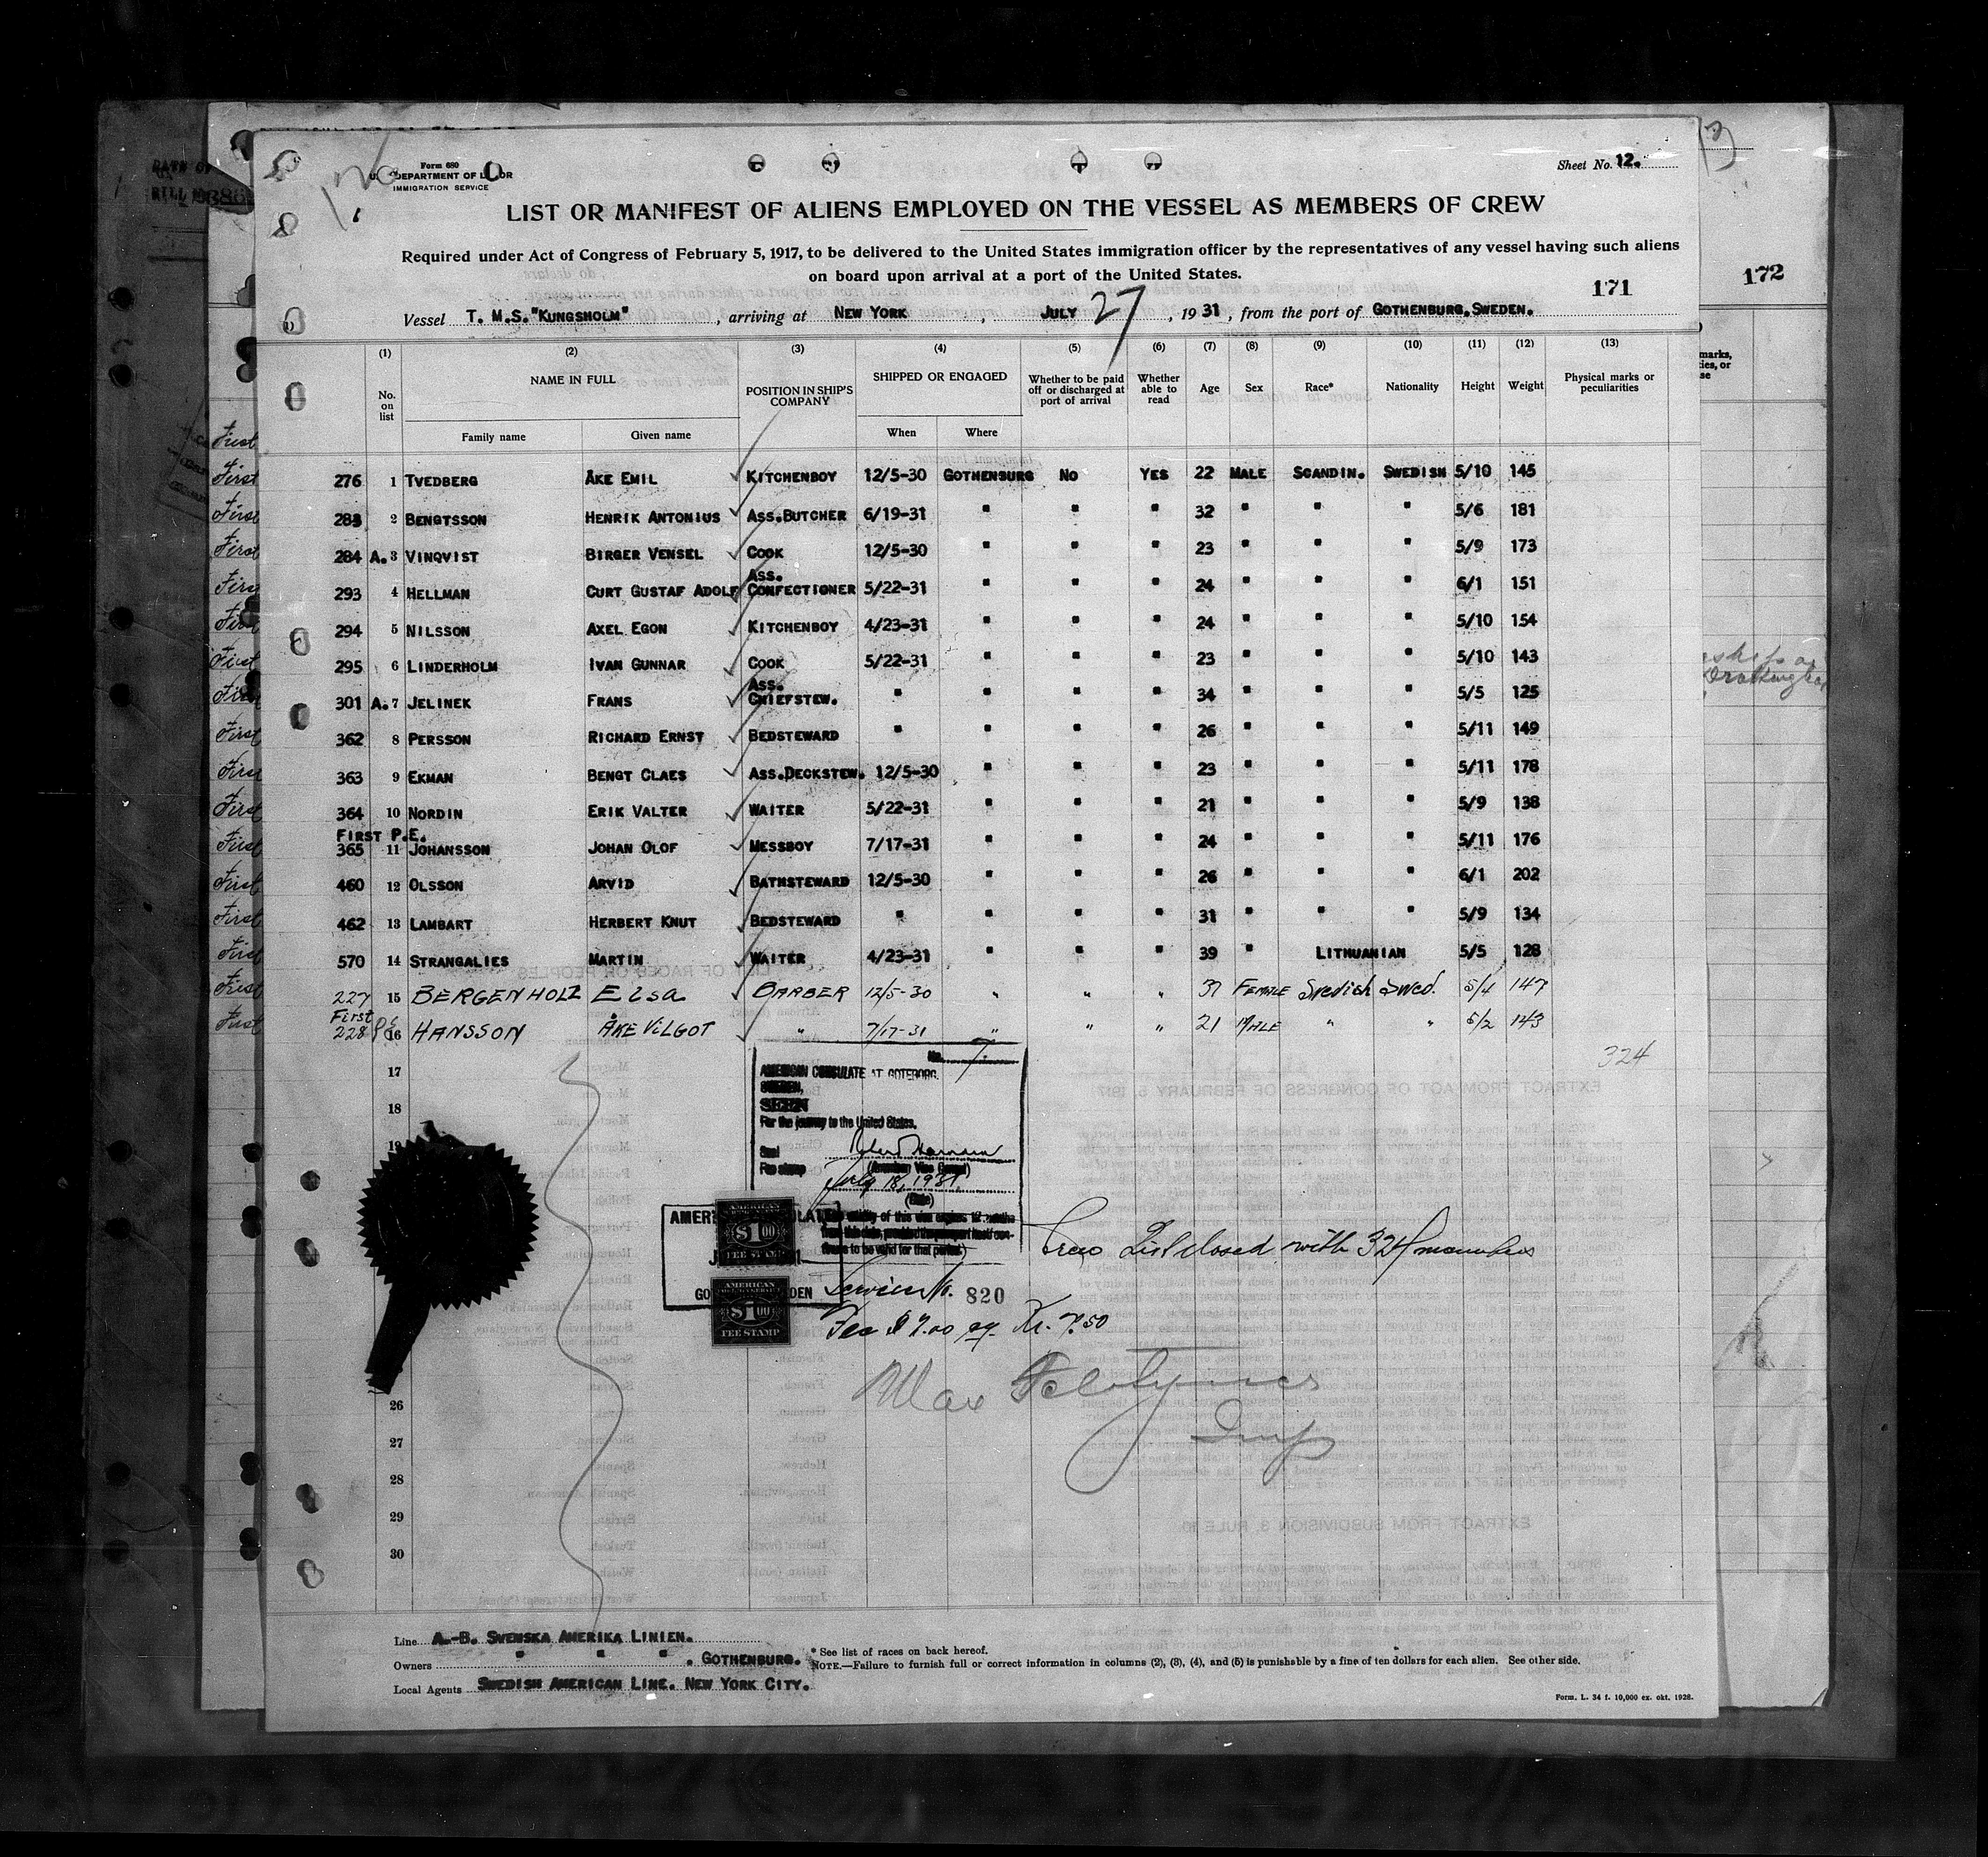 Form 680
U.S. DEPARTMENT OF LABOR
IMMIGRATION SERVICE
Sheet No. 12.
LIST OR MANIFEST OF ALIENS EMPLOYED ON THE VESSEL AS MEMBERS OF CREW
Required under Act of Congress of February 5, 1917, to be delivered to the United States immigration officer by the representatives of any vessel having such aliens
on board upon arrival at a port of the United States.
171
172
Vessel T. M.S. "KUNGSHOLM", arriving at NEW YORK, JULY 27, 1931, from the port of GOTHENBURG, SWEDEN.
(1) (2) (3) (4) (5) (6) (7) (8) (9) (10) (11) (12) (13)
No. on list NAME IN FULL POSITION IN SHIP'S COMPANY SHIPPED OR ENGAGED Whether to be paid off or discharged at port of arrival Whether able to read Age Sex Race* Nationality Height Weight Physical marks or peculiarities
Family name Given name When Where
276 1 TVEDBERG ÅKE EMIL KITCHENBOY 12/5-30 GOTHENBURG NO YES 22 MALE SCANDIN. SWEDISH 5/10 145
283 2 BENGTSSON HENRIK ANTONIUS ASS.BUTCHER 6/19-31 " " " 32 " " " 5/6 181
284 A. 3 VINQVIST BIRGER VENSEL COOK 12/5-30 " " " 23 " " " 5/9 173
293 4 HELLMAN CURT GUSTAF ADOLF ASS. CONFECTIONER 5/22-31 " " " 24 " " " 6/1 151
294 5 NILSSON AXEL EGON KITCHENBOY 4/23-31 " " " 24 " " " 5/10 154
295 6 LINDERHOLM IVAN GUNNAR COOK 5/22-31 " " " 23 " " " 5/10 143
301 A. 7 JELINEK FRANS ASS. CHIEFSTEW. " " " " 34 " " " 5/5 125
362 8 PERSSON RICHARD ERNST BEDSTEWARD " " " " 26 " " " 5/11 149
363 9 EKMAN BENGT CLAES ASS.DECKSTEW. 12/5-30 " " " 23 " " " 5/11 178
364 10 NORDIN ERIK VALTER WAITER 5/22-31 " " " 21 " " " 5/9 138
FIRST P.E.
365 11 JOHANSSON JOHAN OLOF MESSBOY 7/17-31 " " " 24 " " " 5/11 176
460 12 OLSSON ARVID BATHSTEWARD 12/5-30 " " " 26 " " " 6/1 202
462 13 LAMBART HERBERT KNUT BEDSTEWARD " " " " 31 " " " 5/9 134
570 14 STRANGALIES MARTIN WAITER 4/23-31 " " " 39 " LITHUANIAN 5/5 128
227 15 BERGENHOLZ Elsa BARBER 12/5-30 " " " 37 FEMALE Swedish Swed. 5/4 147
First
228 PE 16 HANSSON ÅKE VILGOT " 7/17-31 " " " 21 MALE " " 5/2 143
324
17
18
19
No. 7.
AMERICAN CONSULATE AT GOTEBORG,
SWEDEN,
SEEN
For the journey to the United States.
Seal
(American Vice Consul)
Fee stamp July 18, 1931.
(Date)
The validity of this visa expires 12 months
from this date, provided the passport itself con-
tinues to be valid for that period.)
AMERICAN
$1 00
FEE STAMP
AMERICAN
$1 00
FEE STAMP
Crew List closed with 324 members
Service No. 820
Fee $2.00 eq. Kr. 7.50
Max
Insp
26
27
28
29
30
Line A.-B. SVENSKA AMERIKA LINIEN.
Owners " " " . GOTHENBURG.
Local Agents SWEDISH AMERICAN LINE. NEW YORK CITY.
* See list of races on back hereof.
NOTE.—Failure to furnish full or correct information in columns (2), (3), (4), and (5) is punishable by a fine of ten dollars for each alien. See other side.
Form. L. 34 f. 10,000 ex. okt. 1928.